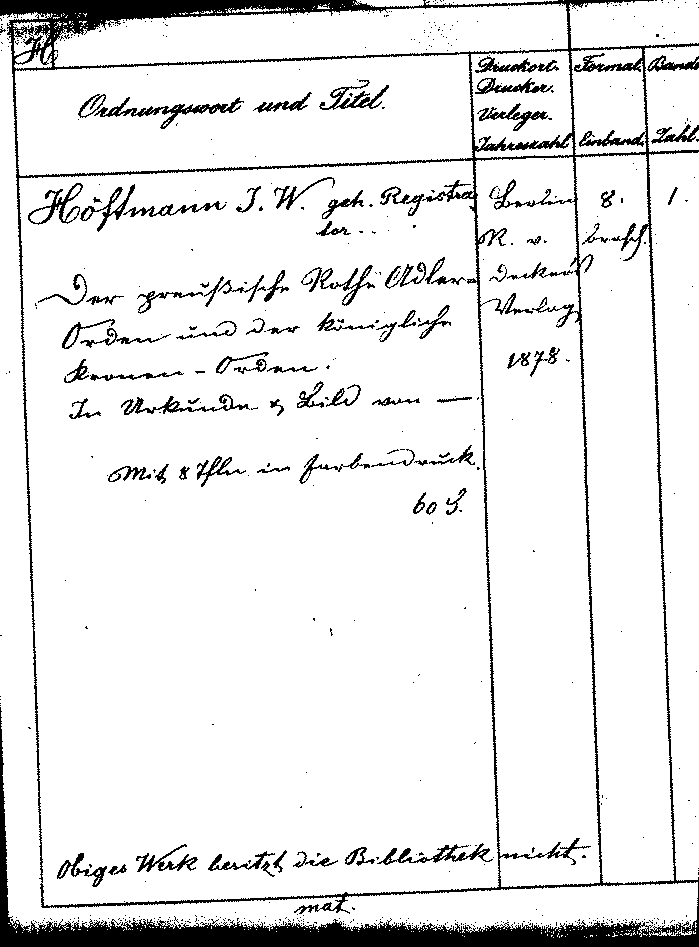 H
Ordnungswort und Titel.
Druckort.
Drucker.
Verleger.
Jahreszahl
Format.
Einband.
Bands
Zahl.
Höftmann J. W. geh. Registra
tor..
Der preußische Rothe Adler-
Orden und der königliche
Kronen-Orden.
In Urkunde & Bild von —
Mit 8 Tfln in Farbendruck.
60 S.
Berlin
R. v.
Decker's
Verlag
1878.
8.
brosch.
1.
Obiges Werk besitzt die Bibliothek nicht.
mat.